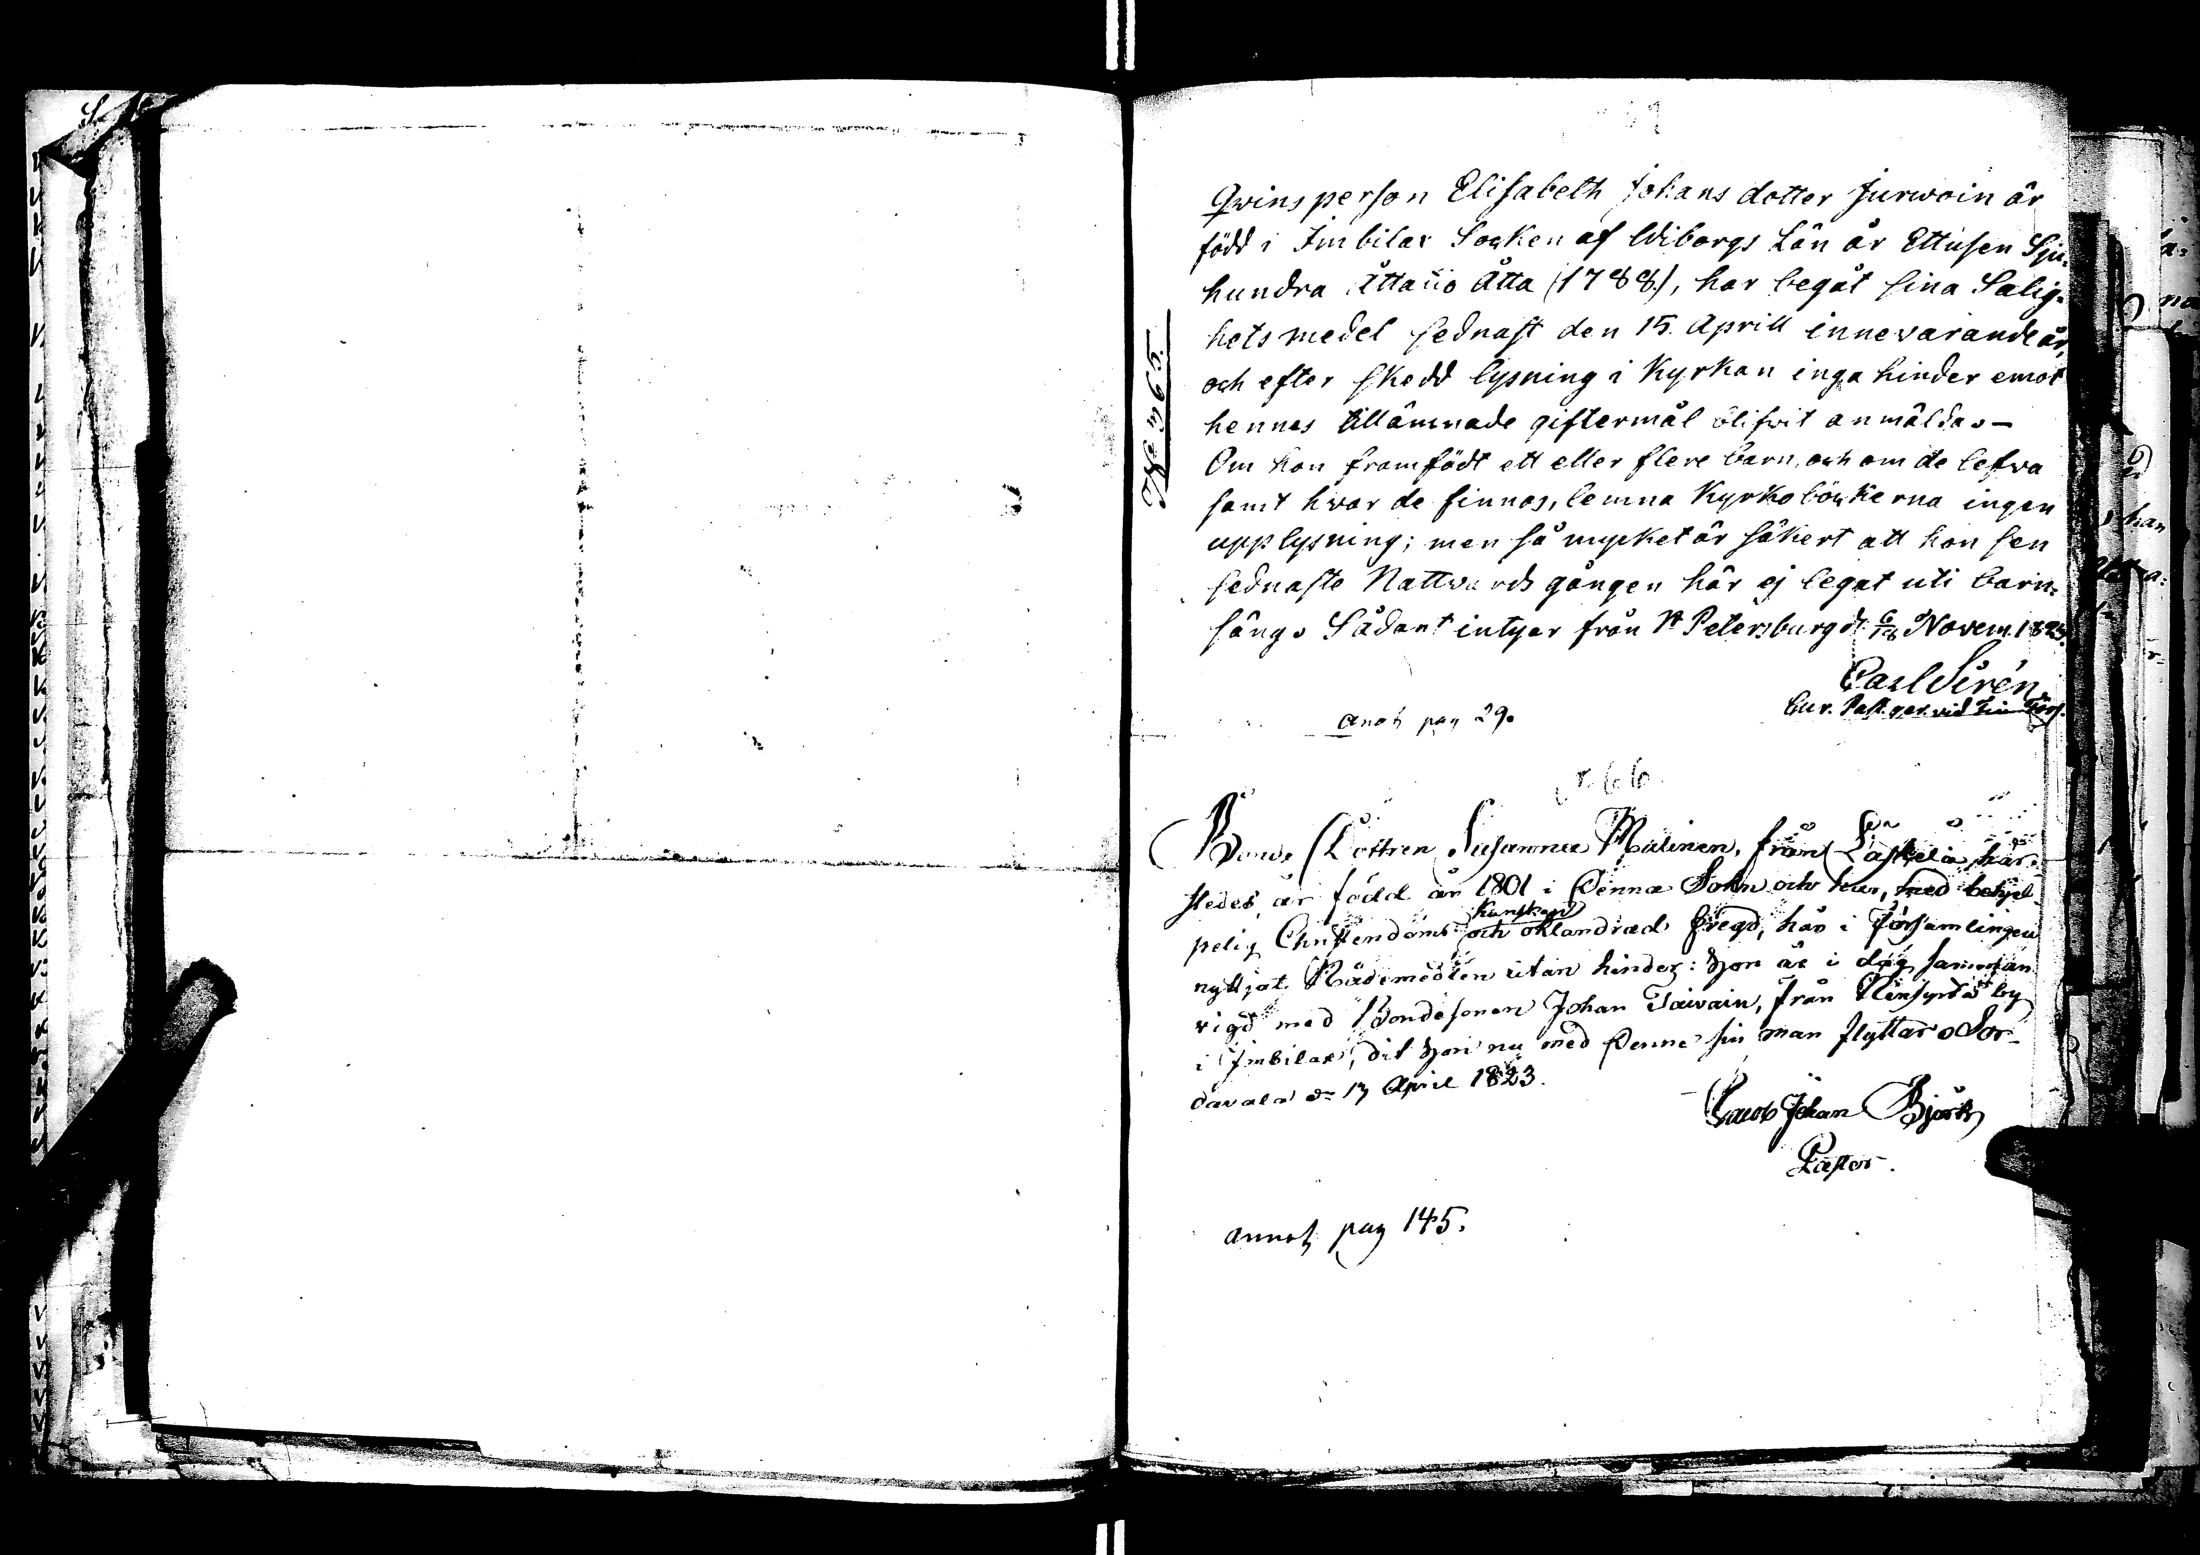 No 365.
Qvinsperson Elisabeth Johans dotter Jurwoin är
född i Imbilax Socken af Wiborgs Län år Ettusen Sju-
hundra Åttatio Åtta (1788), har begåt sina Salig-
hets medel sednast den 15. Aprill innevarande år,
och efter skedd lysning i Kyrkan inga hinder emot
hennes tillämnade giftermål blifvit anmälda.-
Om hon framfödt ett eller flere barn, och om de lefva
samt hvar de finnas, lemna Kyrkoböckerna ingen
upplysning; men så mycket är säkert att hon sen
sednaste Nattvardsgången här ej legat uti barn-
säng. Sådant intygar från St Petersburg d. 6/18 Novem. 1823.
Carl Sirén
Cur. Past. ger. vid Fin
anot pag 29.
66
Bonde Dottren Susanna Malinen, från Läskelä här-
stedes är född år 1801 i denna Sokn och har, med behjel-
pelig Christendoms
kunskap
och oklandrad fregd, här i Församlingen
nyttjat Nådemedlen utan hinder: Hon är i dag samman
vigd med Bondesonen Johan Taivain, från by
i Imbilax, dit Hon nu med denne sin man flyttar. Sor-
davala dn 13 April 1823.
Jacob Johan Björk
Pastor.
annot pag 145.